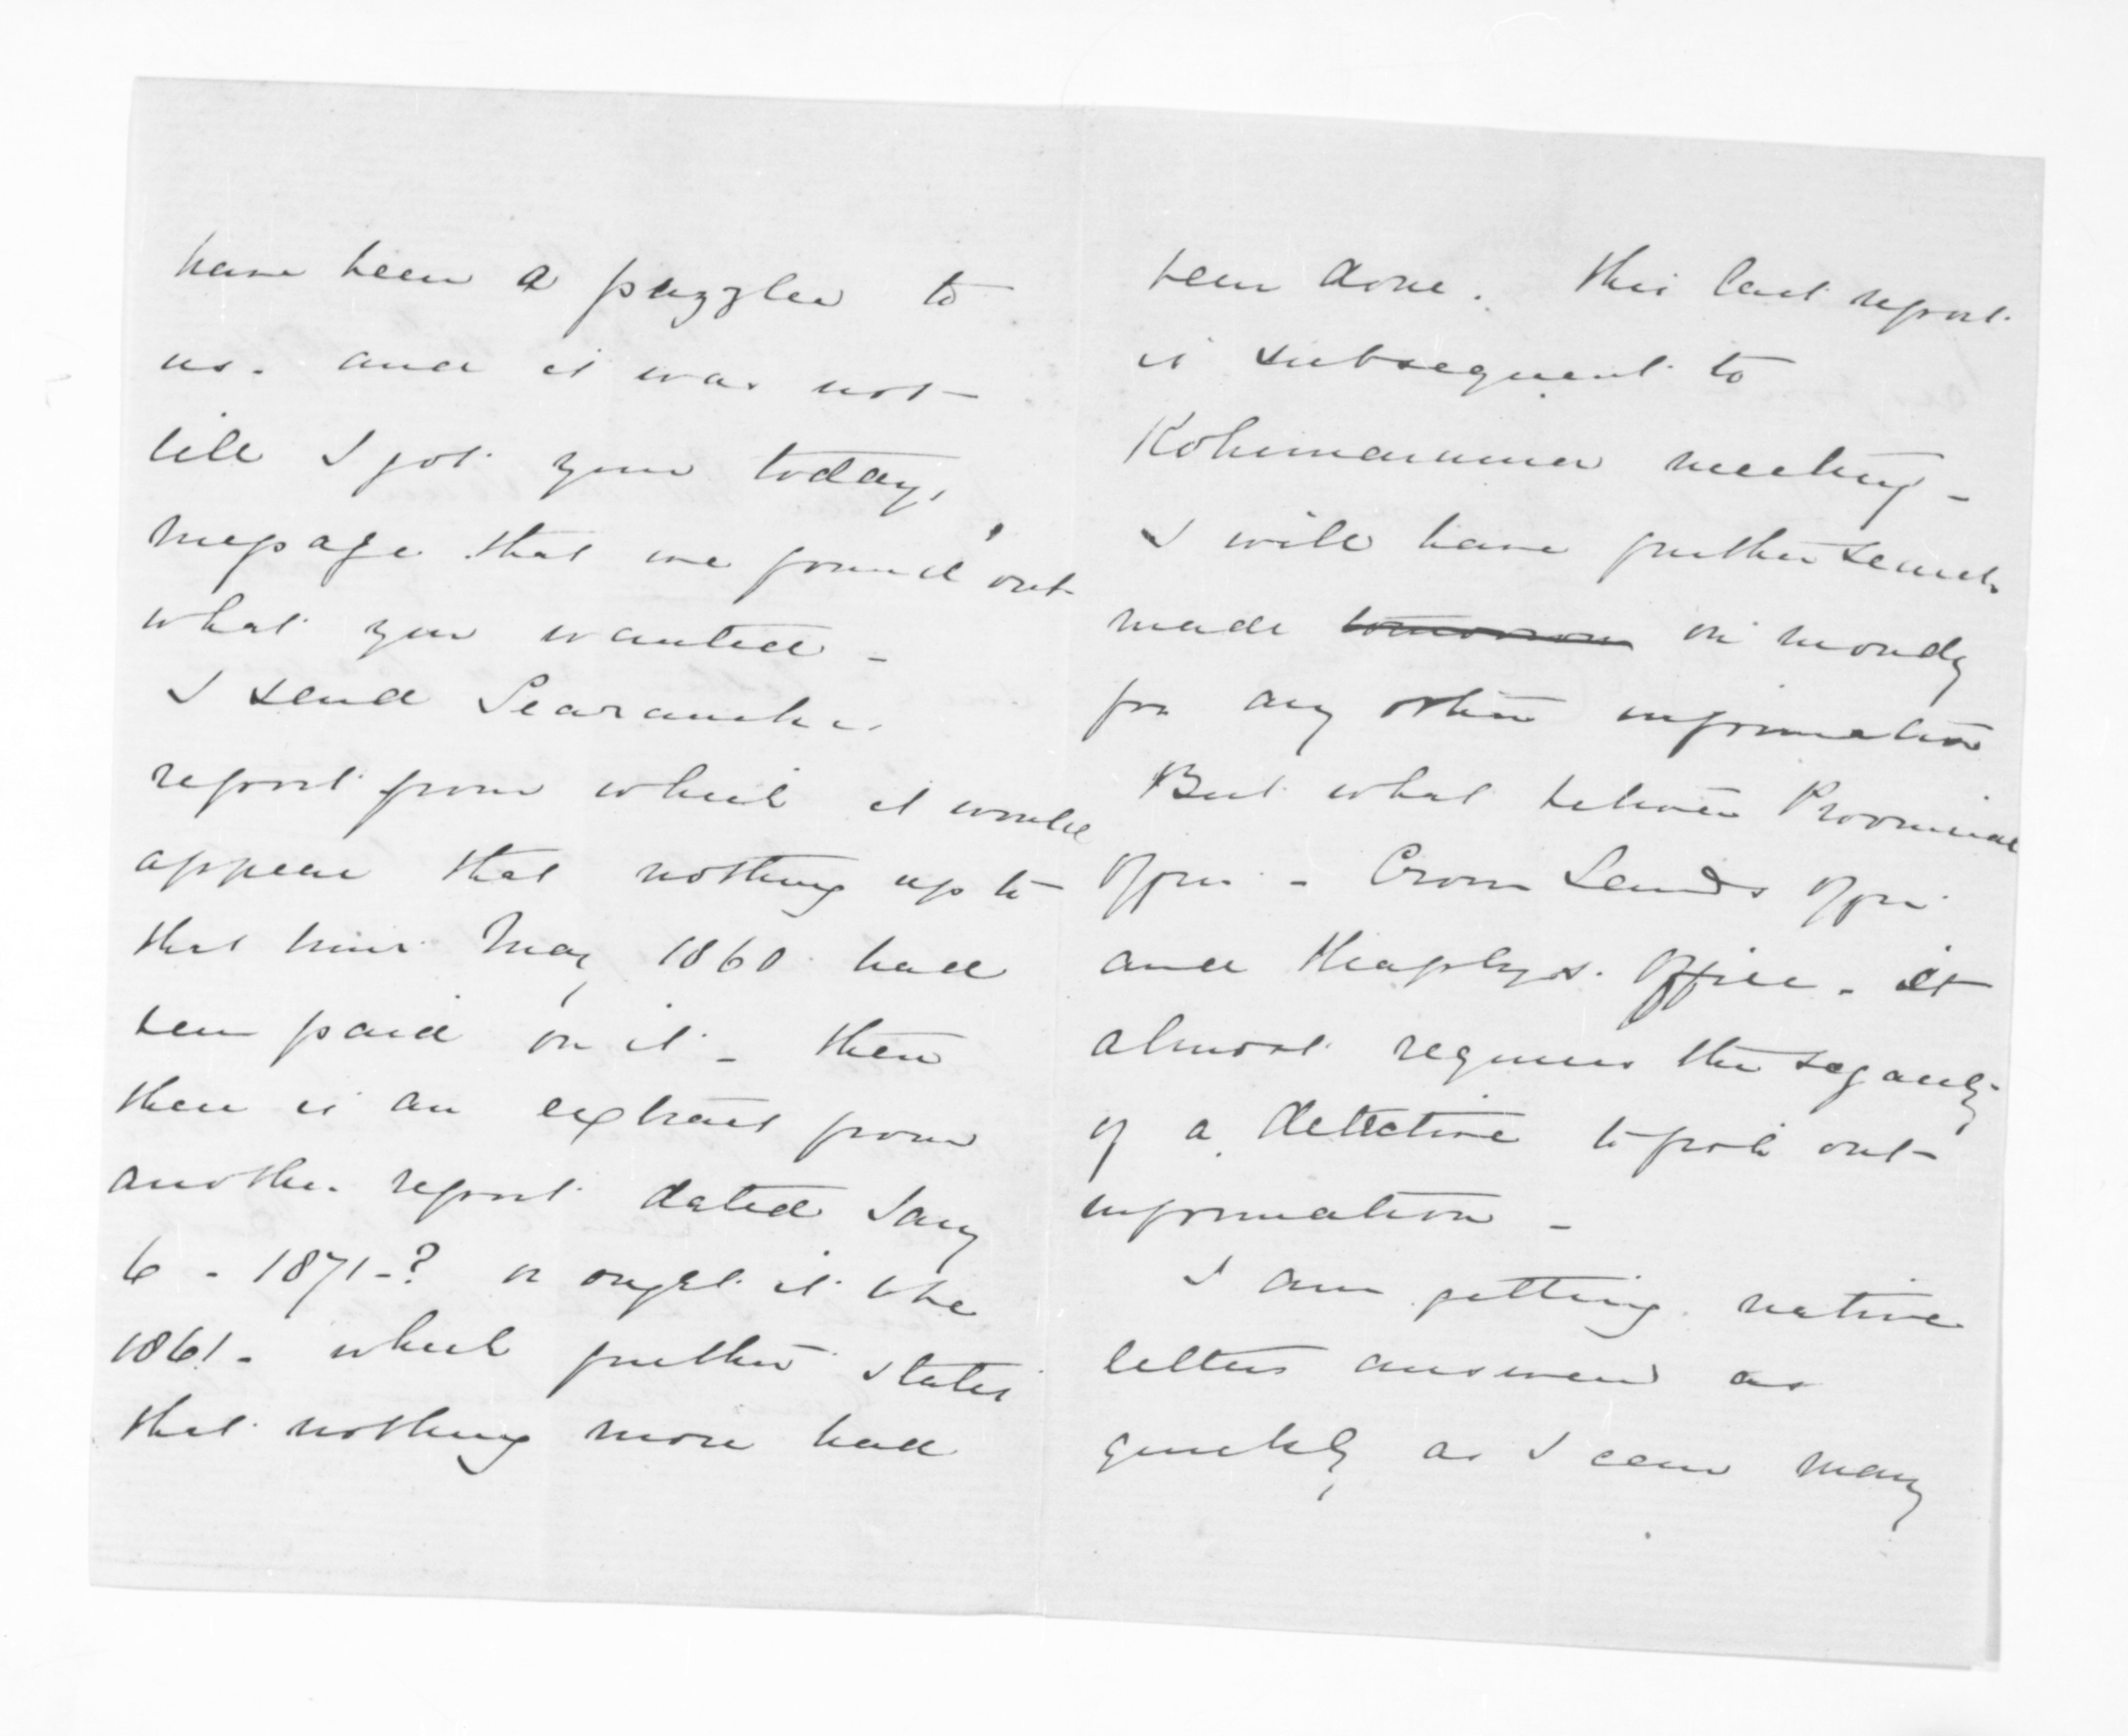 have been a puzzler to
us. and it was not
till I got your today's
message that we found out
what you wanted -
I send Searancke's
report from which it would
appear that nothing up to
that time May 1860 had
been paid on it - then
there is an extract from
another report dated Jany
6 - 1871 - ? or ought it to be
1861 - which further states
that nothing more had
been done. This last report
is subsequent to
Kohimarama meeting -
I will have further search
made tomorrow on Monday
for any other information
But what between Provincial
Office - Crown Lands Office
and Heaphys. Office - it
almost requires the sagacity
of a detective to fish out
information -
I am getting native
letters answered as
quickly as I can many